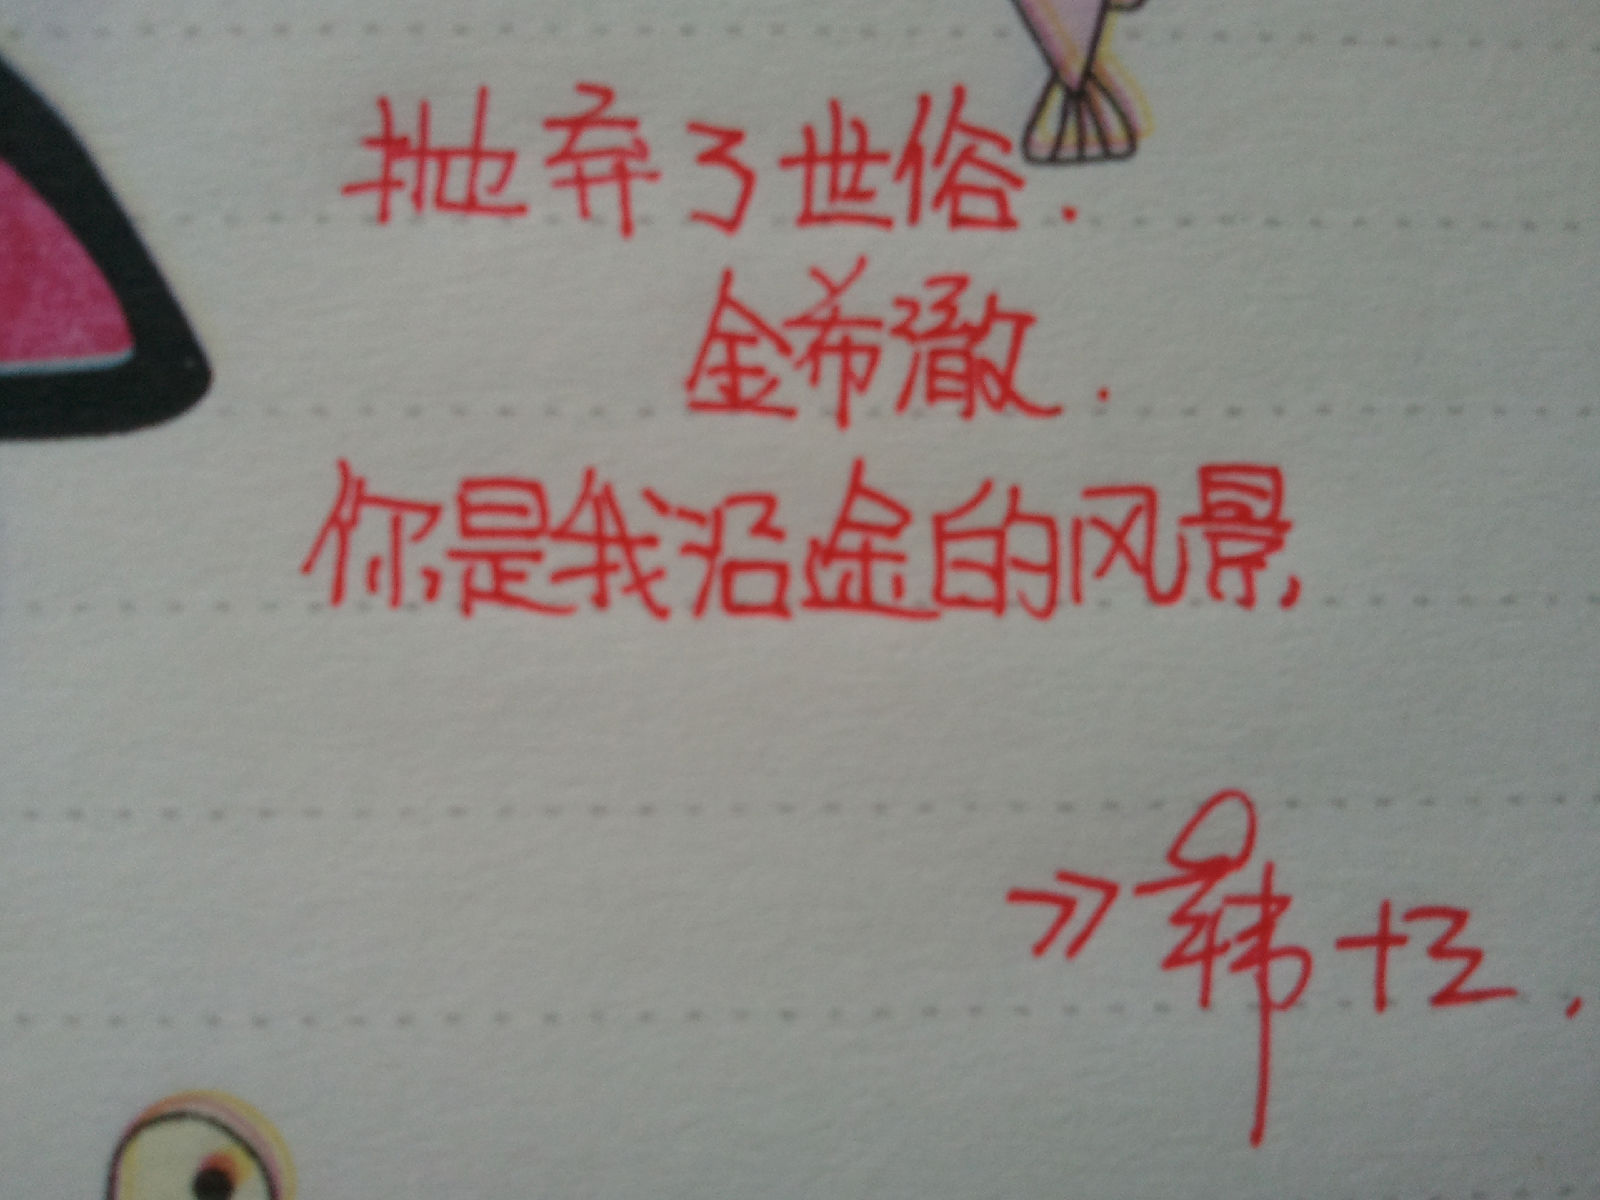 抛弃了世俗.
金希澈.
你是我沿途的风景,
》韩十三.